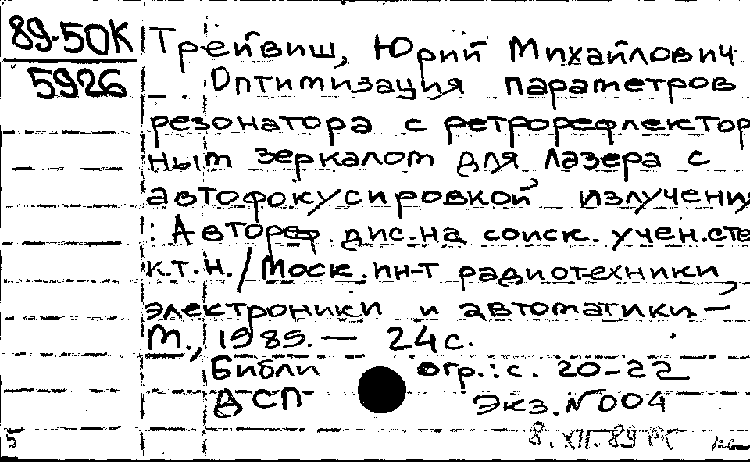 89-50К
5926
Трейвиш, Юрий Михайлович
Оптимизация параметров
резонатора с ретрорефлектор
ным зеркалом для лазера с
автофокусировкой излучени
: Автореф. дис. на соиск. учен. сте
к.т.н. / Моск. ин-т радиотехники,
электроники и автоматики. —
М., 1989. — 24 с.
Библиогр.: с. 20-22
ДСП Экз. N 004
5 8.XII.89